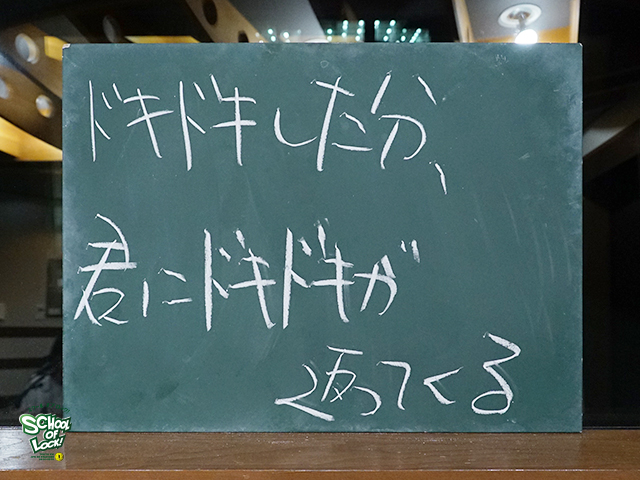 ドキドキした分、
君にドキドキが
返ってくる
SCHOOL
OF
LOCK!